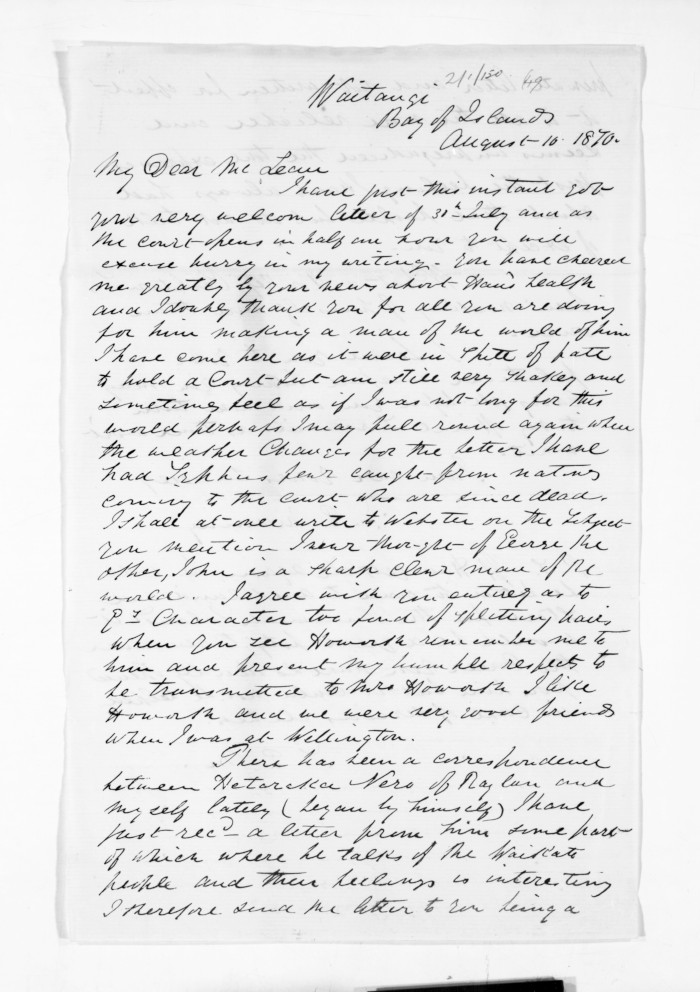 2/1/150 49
Waitangi
Bay of Islands
August 10. 1870.
My Dear McLean
I have just this instant got
your very welcom letter of 30th July and as
the court opens in half an hour you will
excuse hurry in my writing - you have cheered
me greatly by your news about Hauis health
and I doubly thank you for all you are doing
for him making a man of the world of him
I have come here as it were in spite of fate
to hold a Court but am still very shakey and
sometimes feel as if I was not long for this
world perhaps I may pull round again when
the weather Changes for the better I have
had Typhus fever caught from natives
coming to the court who are since dead.
I shall at once write to Webster on the subject
you mention I never thought of George the
other, John is a sharp clever man of the
world. I agree with you entirely as to
Gs Character too fond of splitting hairs
when you see Howorth remember me to
him and present my humble respects to
be transmitted to Mrs Howorth I like
Howorth and we were very good friends
when I was at Wellington.
There has been a correspondence
between Hetaraka Nero of Raglan and
myself lately (began by himself) I have
just recd a letter from him some part
of which where he talks of the Waikato
people and their feelings is interesting
I therefore send the letter to you being a